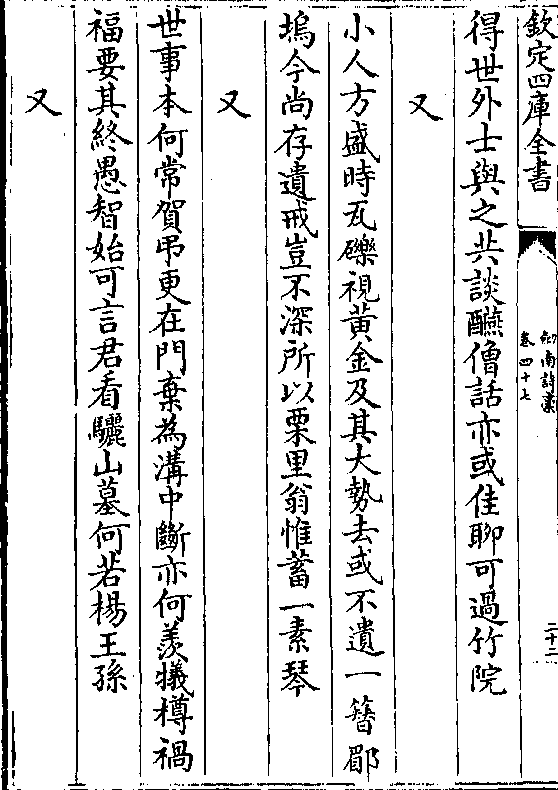 欽定四庫全書
劍南詩藁
卷四十七
二十二
得世外士與之共談醼僧話亦或佳聊可過竹院
又
小人方盛時瓦礫視黃金及其大勢去或不遺一簪郿
塢今尚存遺戒豈不深所以栗里翁惟蓄一素琴
又
世事本何常賀弔更在門棄為溝中斷亦何羡犧樽禍
福要其終愚智始可言君看驪山墓何若楊王孫
又